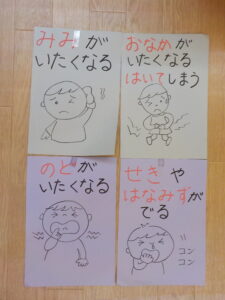 みみが
いたくなる
おなかが
いたくなる
はいてしまう
のどが
いたくなる
せきや
はなみずが
でる
コン
コン